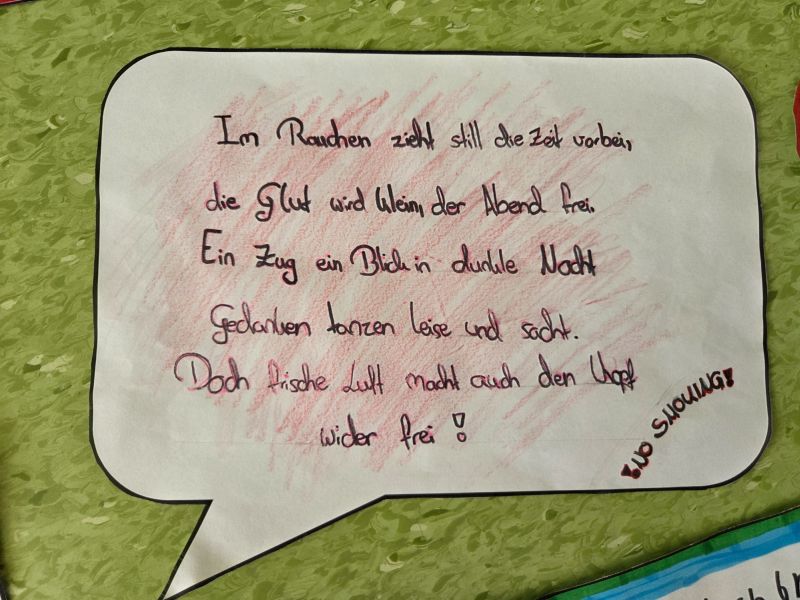 Im Rauchen zieht still die Zeit vorbei,
die Glut wird klein, der Abend frei.
Ein Zug ein Blick in dunkle Nacht
Gedanken tanzen leise und sacht.
Doch frische Luft macht auch den Kopf
wider frei !
!NO SMOKING!